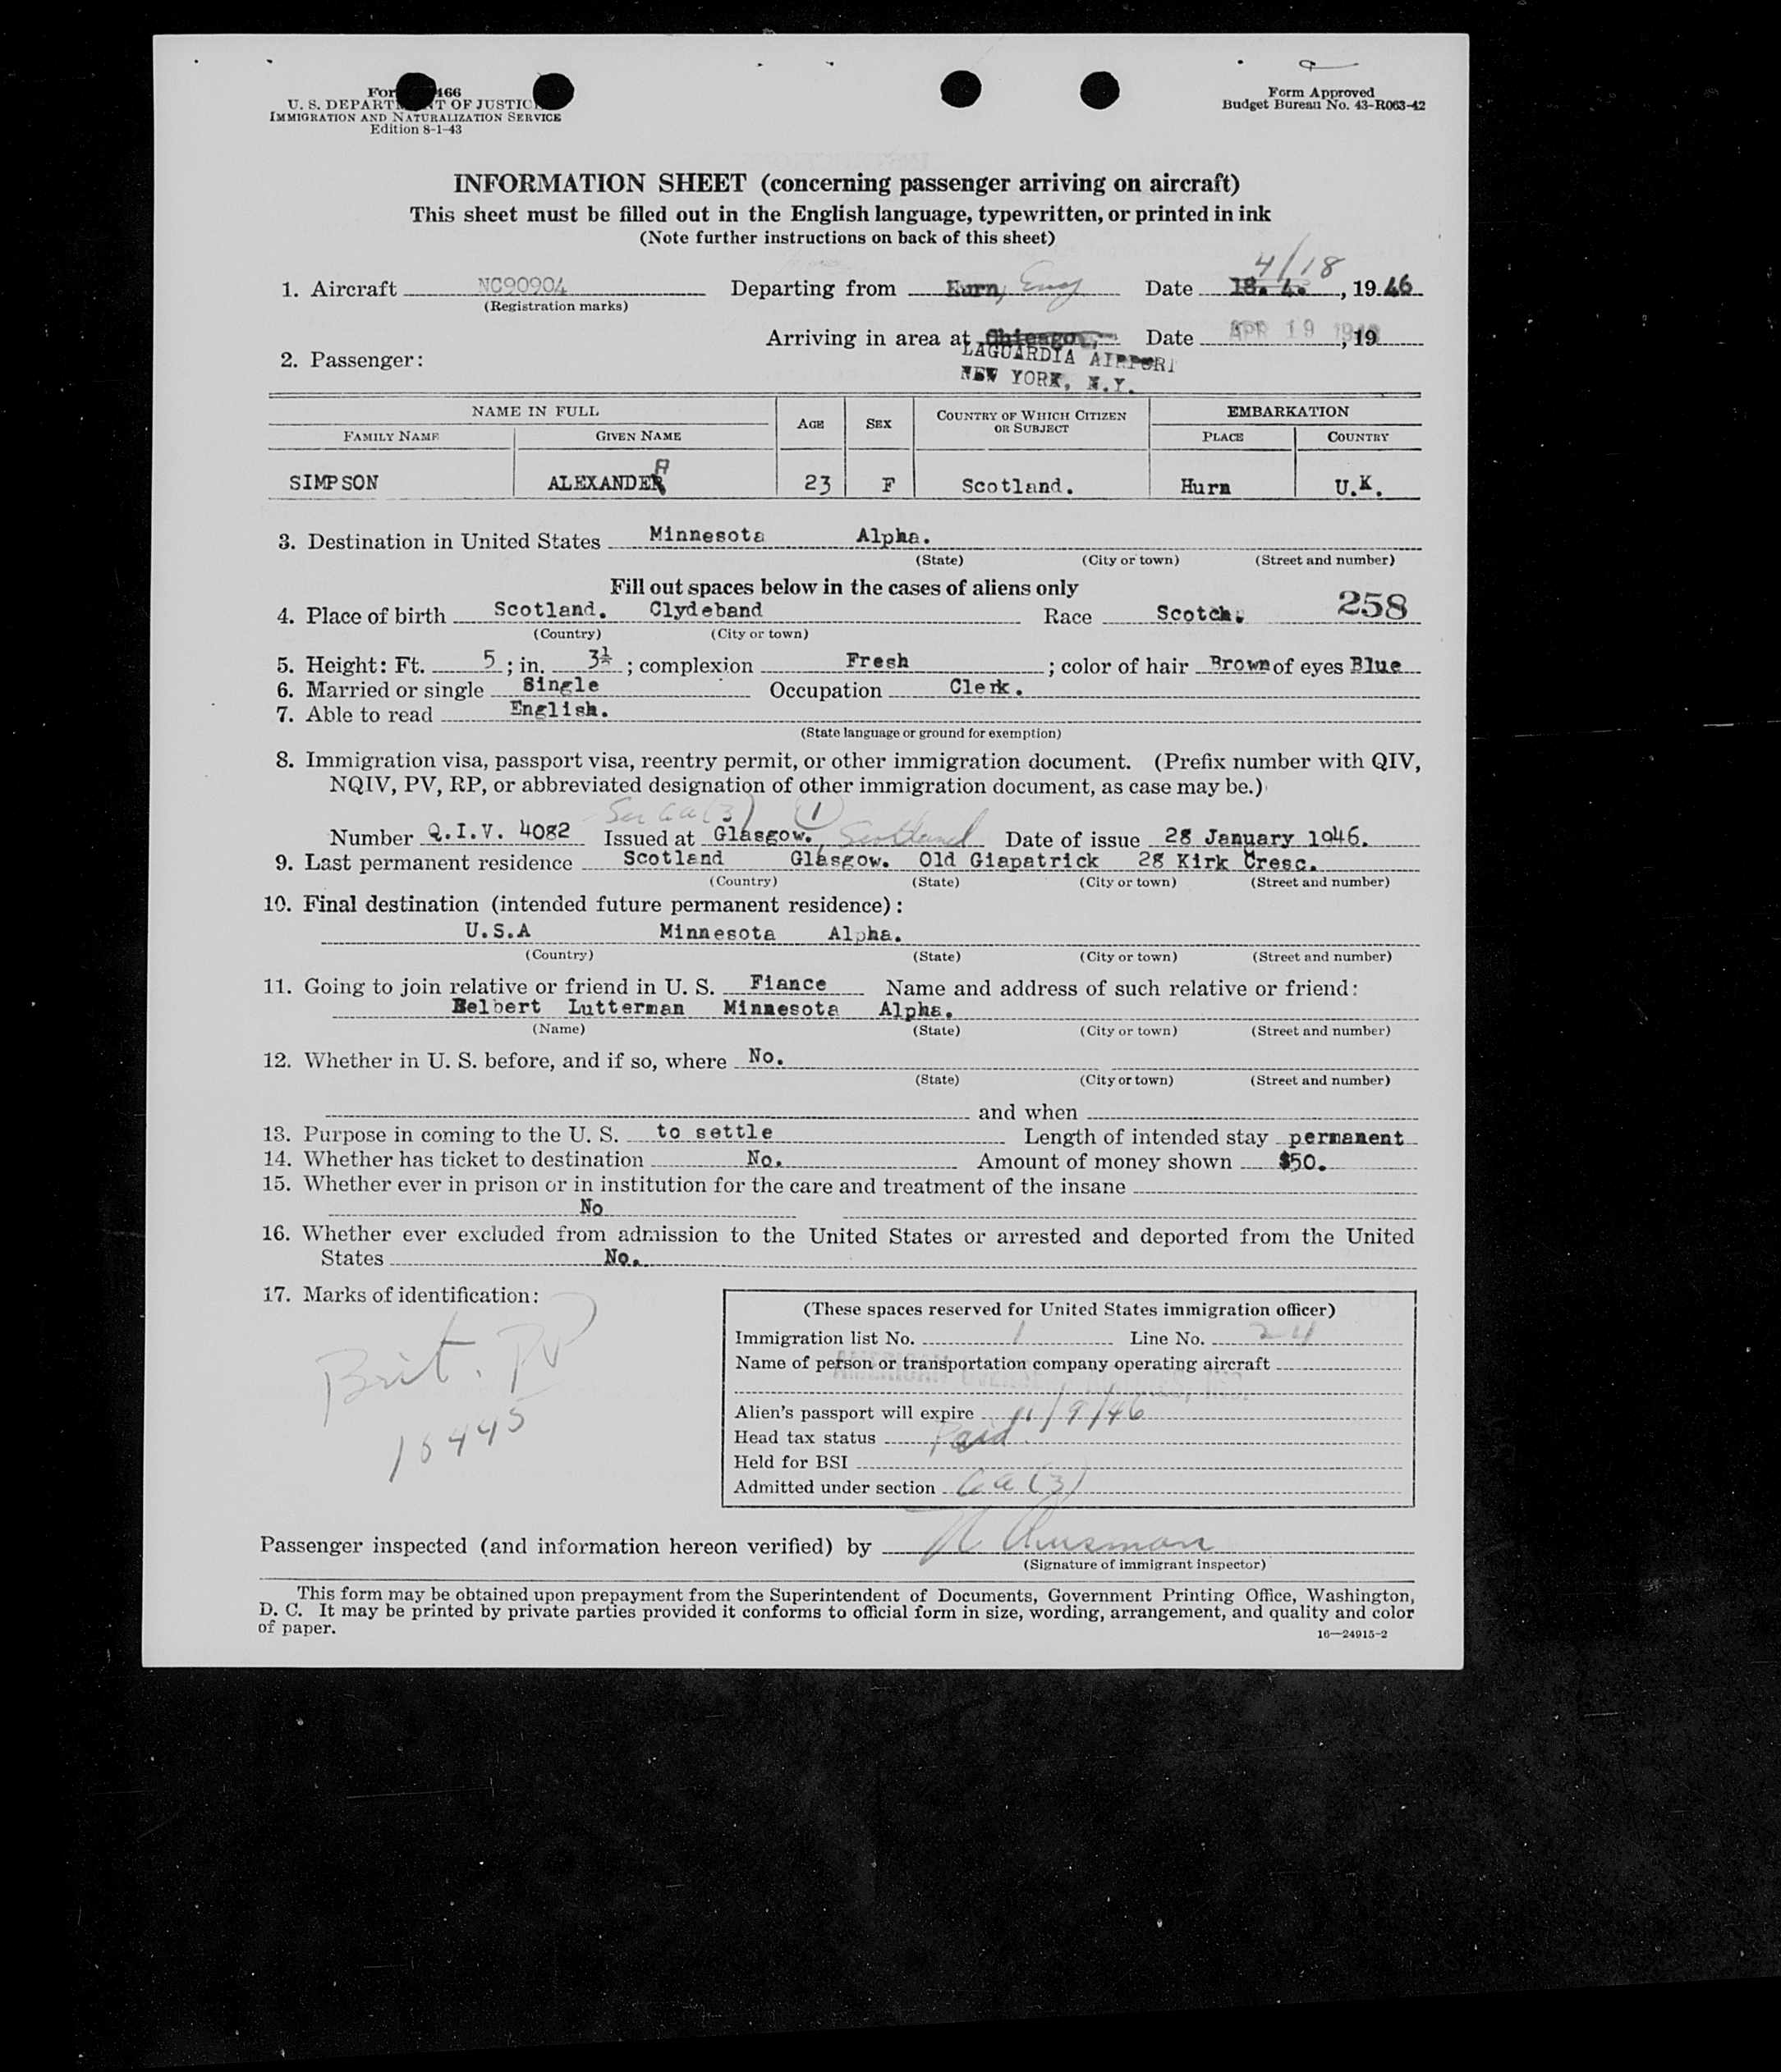 166
U. S. DEPARTMENT OF JUSTICE
IMMIGRATION AND NATURALIZATION SERVICE
Edition 8-1-43
Form Approved
Budget Bureau No. 43-R063-42
INFORMATION SHEET (concerning passenger arriving on aircraft)
This sheet must be filled out in the English language, typewritten, or printed in ink
(Note further instructions on back of this sheet)
4/18
1. Aircraft NC90904 Departing from Hurn, Eng Date 18. 4. , 19 46
(Registration marks)
Arriving in area at Chicago. Date APR 19 1946 , 19
LAGUARDIA AIRPORT
NEW YORK, N.Y.
2. Passenger:
NAME IN FULL AGE SEX COUNTRY OF WHICH CITIZEN OR SUBJECT EMBARKATION
FAMILY NAME GIVEN NAME PLACE COUNTRY
SIMPSON ALEXANDER A 23 F Scotland. Hurn U.K.
3. Destination in United States Minnesota Alpha.
(State) (City or town) (Street and number)
Fill out spaces below in the cases of aliens only
4. Place of birth Scotland. Clydeband Race Scotch. 258
(Country) (City or town)
5. Height: Ft. 5 ; in. 3½ ; complexion Fresh ; color of hair Brown of eyes Blue
6. Married or single Single Occupation Clerk.
7. Able to read English.
(State language or ground for exemption)
8. Immigration visa, passport visa, reentry permit, or other immigration document. (Prefix number with QIV,
NQIV, PV, RP, or abbreviated designation of other immigration document, as case may be.)
Sec 6a(3) 1
Number Q.I.V. 4082 Issued at Glasgow. Scotland Date of issue 28 January 1946.
9. Last permanent residence Scotland Glasgow. Old Giapatrick 28 Kirk Cresc.
(Country) (State) (City or town) (Street and number)
10. Final destination (intended future permanent residence):
U.S.A Minnesota Alpha.
(Country) (State) (City or town) (Street and number)
11. Going to join relative or friend in U. S. Fiance Name and address of such relative or friend:
Belbert Lutterman Minnesota Alpha.
(Name) (State) (City or town) (Street and number)
12. Whether in U. S. before, and if so, where No.
(State) (City or town) (Street and number)
and when
13. Purpose in coming to the U. S. to settle Length of intended stay permanent
14. Whether has ticket to destination No. Amount of money shown $50.
15. Whether ever in prison or in institution for the care and treatment of the insane
No
16. Whether ever excluded from admission to the United States or arrested and deported from the United
States No.
17. Marks of identification:
Brit. PP
16445
(These spaces reserved for United States immigration officer)
Immigration list No. 1 Line No. 24
Name of person or transportation company operating aircraft
AMERICAN OVERSEAS AIRLINES, INC.
Alien's passport will expire 11/9/46
Head tax status Paid
Held for BSI
Admitted under section 6a(3)
Passenger inspected (and information hereon verified) by
(Signature of immigrant inspector)
This form may be obtained upon prepayment from the Superintendent of Documents, Government Printing Office, Washington,
D. C. It may be printed by private parties provided it conforms to official form in size, wording, arrangement, and quality and color
of paper.
16—24915-2